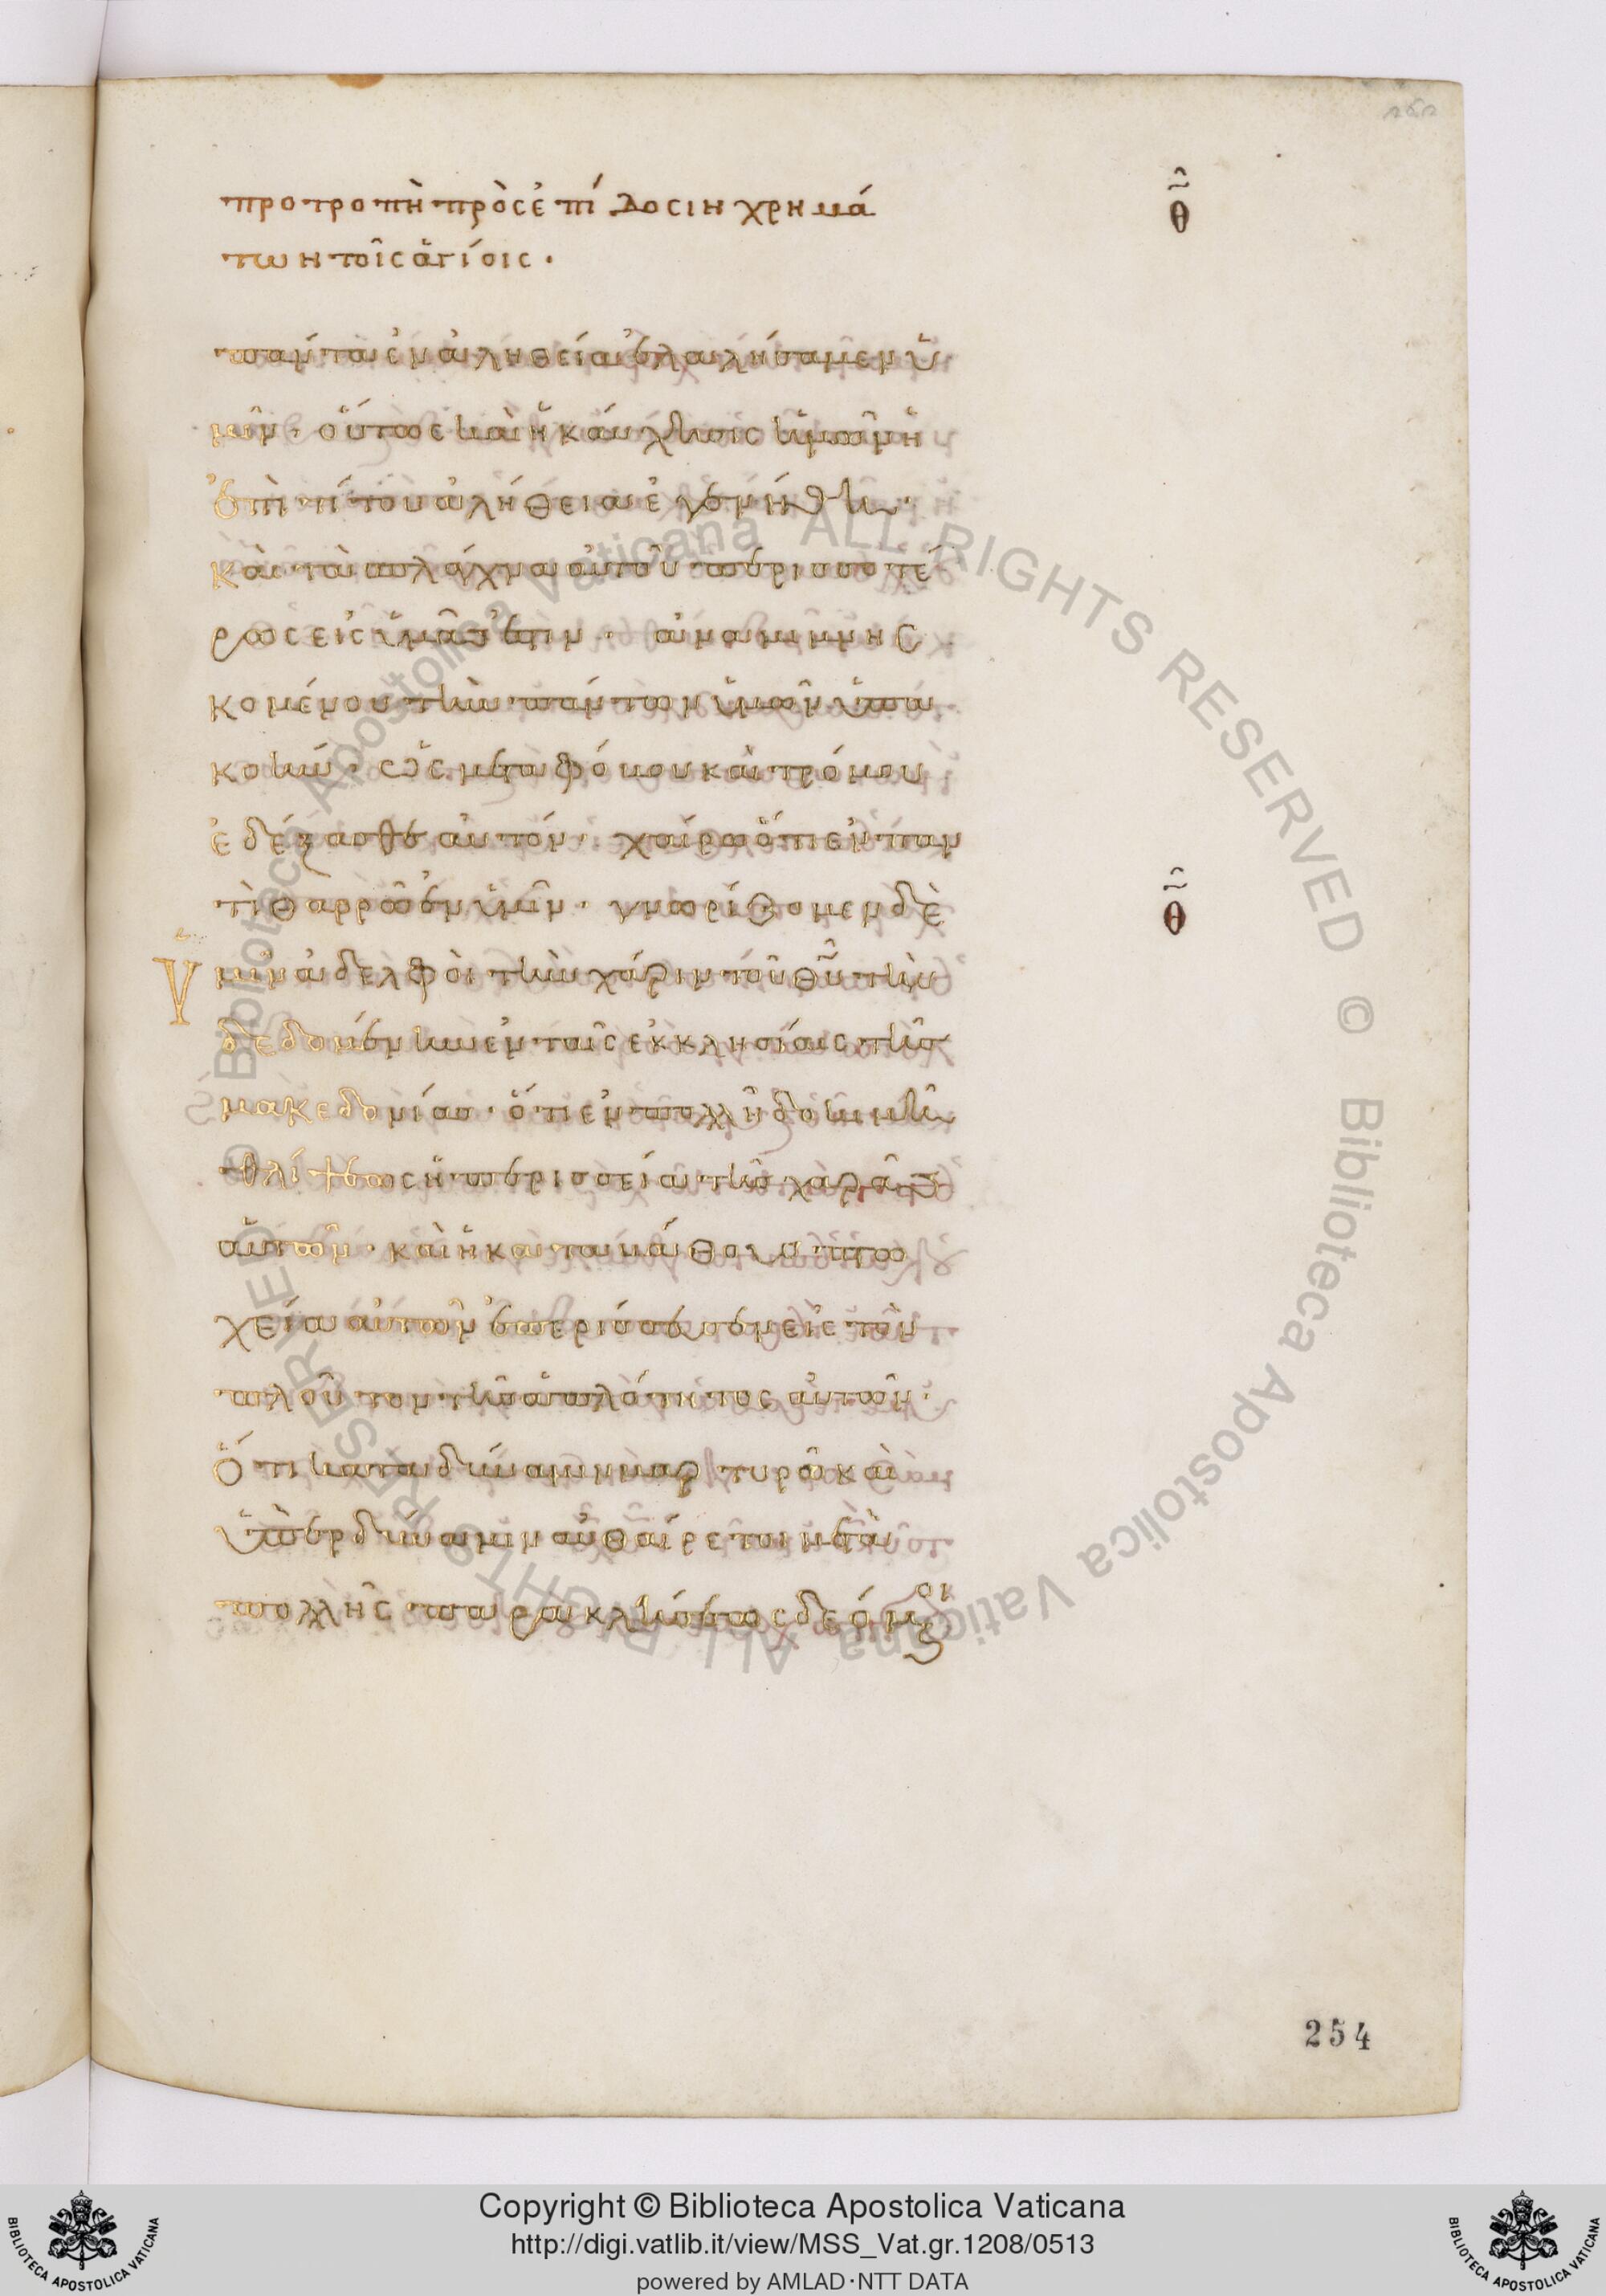 προτροπὴ πρὸς ἐπίδοσιν χρημά
των τοῖς ἁγίοις·
θ
πάντα ἐν ἀληθεία ἐλαλήσαμεν ὑ
μῖν· οὕτως καὶ ἡ καύχησις ὑμῶν ἡ
ἐπὶ τίτου ἀλήθεια ἐγενήθη·
καὶ τὰ σπλάγχνα αὐτοῦ περισσοτέ
ρως εἰς ὑμᾶς ἐστιν· ἀναμιμνησ
κομένου τὴν πάντων ὑμῶν ὑπα
κοήν· ὡς μετὰ φόβου καὶ τρόμου
ἐδέξασθε αὐτόν· χαίρω ὅτι ἐν παν
τὶ θαρρῶ ἐν ὑμῖν· γνωρίζομεν δὲ
θ
ὑμῖν ἀδελφοὶ τὴν χάριν τοῦ θῦ τὴν
δεδομένην ἐν ταῖς ἐκκλησίαις τῆς
μακεδονίας· ὅτι ἐν πολλῆ δοκιμῆ
θλίψεως ἡ περισσεία τῆς χαρᾶς
αὐτῶν· καὶ ἡ κατα βάθους πτω
χεία αὐτῶν ἐπερίσσευσεν εἰς τὸν
πλοῦτον τῆς ἁπλότητος αὐτῶν·
Ὅτι κατα δύναμιν μαρτυρῶ καὶ
ὑπὲρ δύναμιν αὐθαίρετοι μετὰ
πολλῆς παρακλήσεως δεόμενοι
254
Copyright © Biblioteca Apostolica Vaticana
http://digi.vatlib.it/view/MSS_Vat.gr.1208/0513
powered by AMLAD·NTT DATA
© Biblioteca Apostolica Vaticana ALL RIGHTS RESERVED
© Biblioteca Apostolica Vaticana ALL RIGHTS RESERVED
BIBLIOTECA APOSTOLICA VATICANA
BIBLIOTECA APOSTOLICA VATICANA